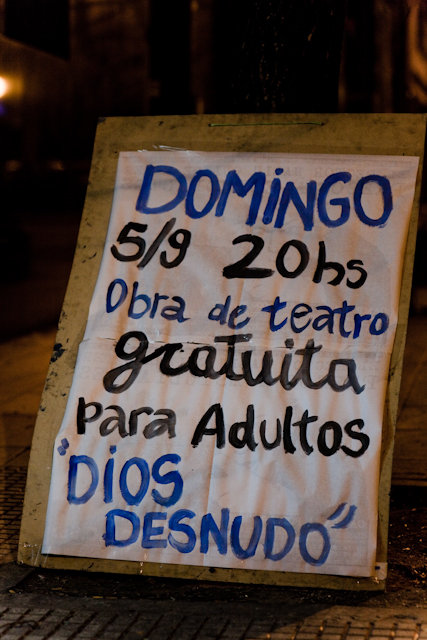 DOMINGO
5/9 20hs
Obra de teatro
gratuita
para Adultos
"DIOS
DESNUDO"